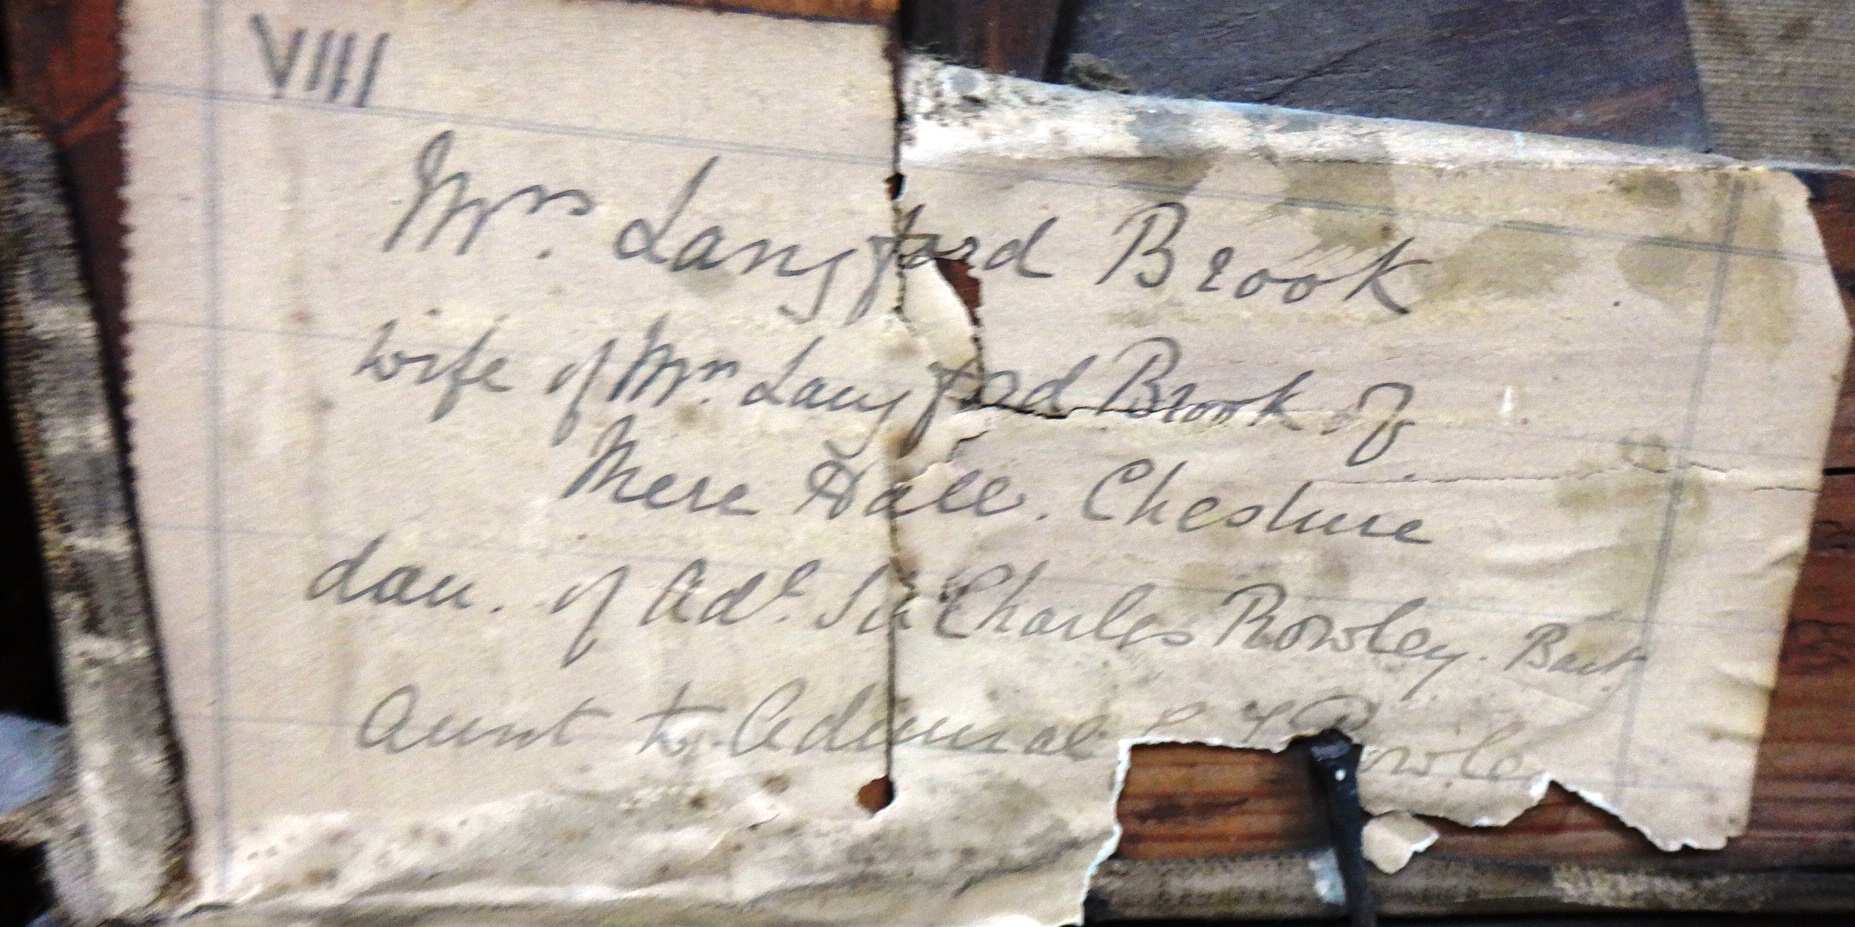 VIII
Mrs. Langford Brook
wife of Mr. Langford Brook of
Mere Hall. Cheshire
dau. of Adl. Sir Charles Rowley. Bart.
Aunt to Admiral